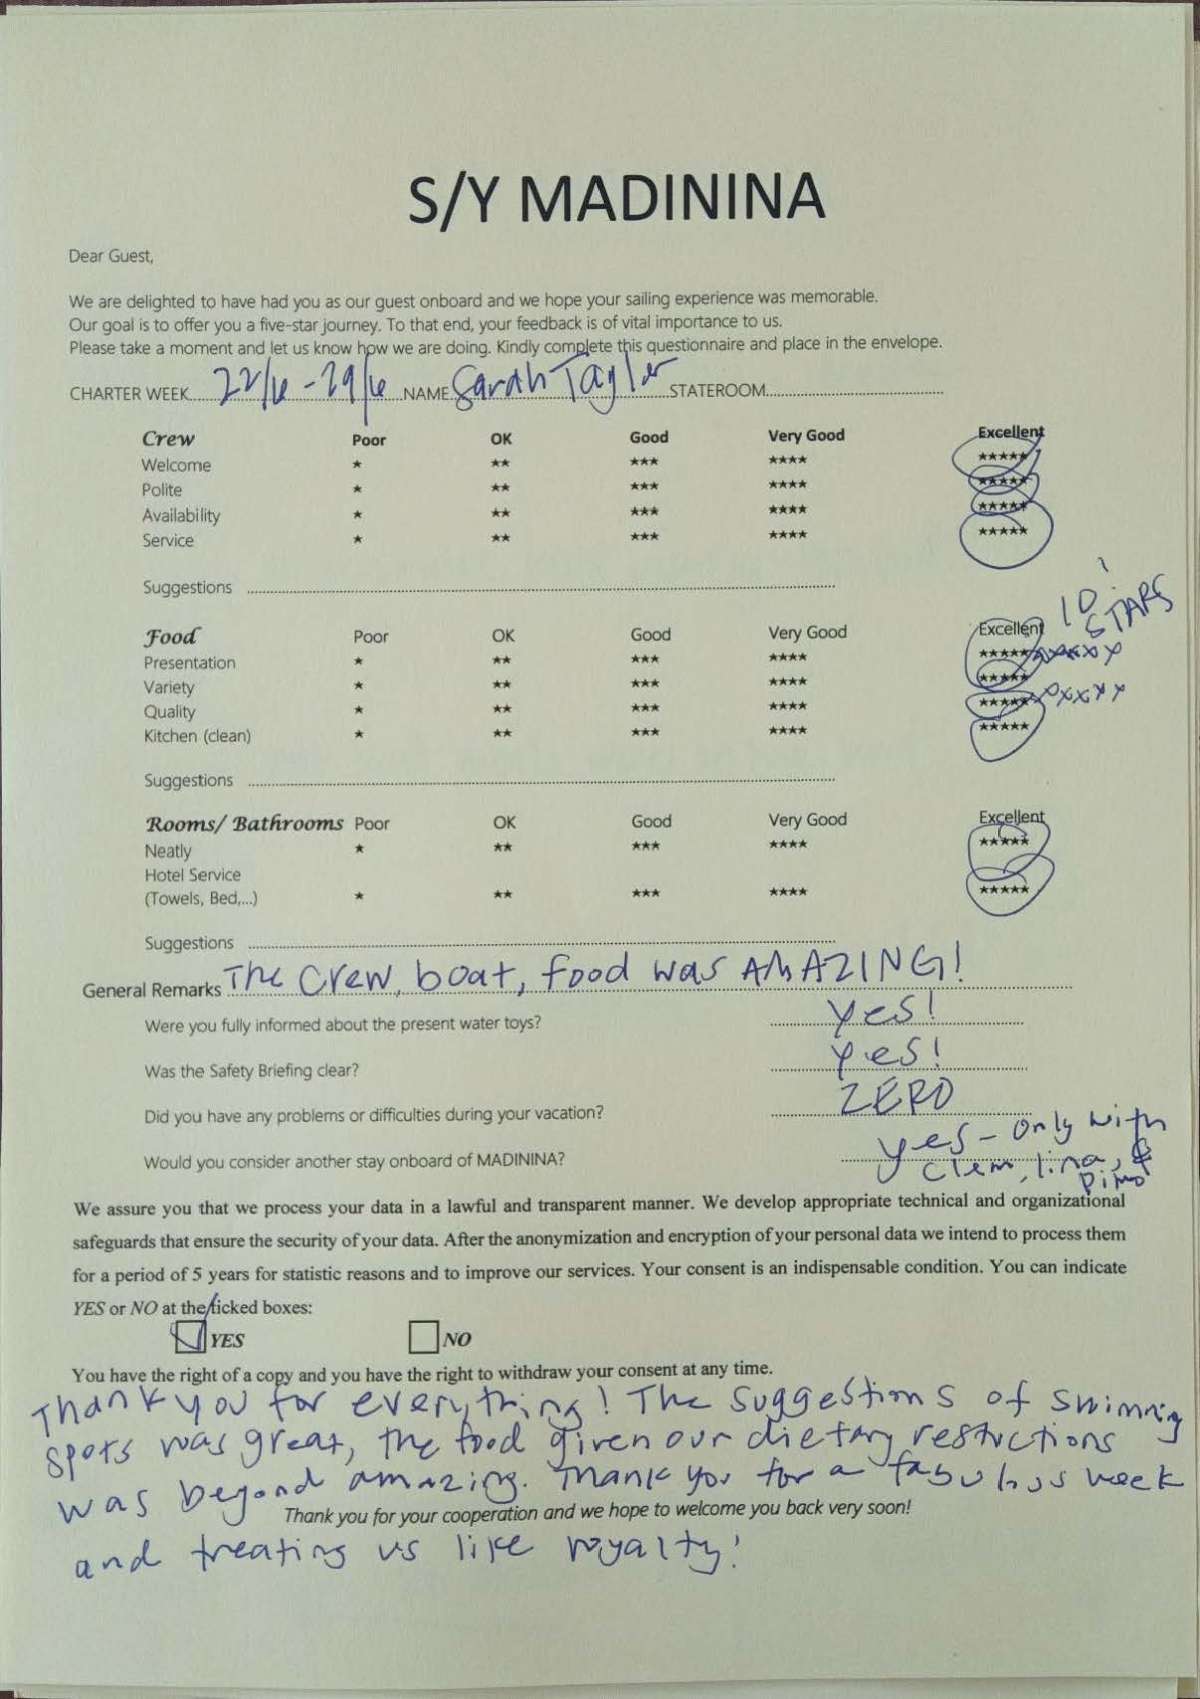 S/Y MADININA
Dear Guest,
We are delighted to have had you as our guest onboard and we hope your sailing experience was memorable.
Our goal is to offer you a five-star journey. To that end, your feedback is of vital importance to us.
Please take a moment and let us know how we are doing. Kindly complete this questionnaire and place in the envelope.
CHARTER WEEK 22/6 - 29/6 NAME Sarah Taylor STATEROOM
Crew Poor OK Good Very Good Excellent
Welcome ★ ★★ ★★★ ★★★★ ★★★★★
Polite ★ ★★ ★★★ ★★★★ ★★★★★
Availability ★ ★★ ★★★ ★★★★ ★★★★★
Service ★ ★★ ★★★ ★★★★ ★★★★★
Suggestions
10 STARS
Food Poor OK Good Very Good Excellent
Presentation ★ ★★ ★★★ ★★★★ ★★★★★ xxxxx
Variety ★ ★★ ★★★ ★★★★ ★★★★★
Quality ★ ★★ ★★★ ★★★★ ★★★★★ xxxxx
Kitchen (clean) ★ ★★ ★★★ ★★★★ ★★★★★
Suggestions
Rooms/ Bathrooms Poor OK Good Very Good Excellent
Neatly ★ ★★ ★★★ ★★★★ ★★★★★
Hotel Service
(Towels, Bed,...) ★ ★★ ★★★ ★★★★ ★★★★★
Suggestions
General Remarks The crew, boat, food was AMAZING!
Were you fully informed about the present water toys? Yes!
Was the Safety Briefing clear? Yes!
Did you have any problems or difficulties during your vacation? ZERO
Would you consider another stay onboard of MADININA? yes - only with
Clem, lina, &
Dimo
We assure you that we process your data in a lawful and transparent manner. We develop appropriate technical and organizational
safeguards that ensure the security of your data. After the anonymization and encryption of your personal data we intend to process them
for a period of 5 years for statistic reasons and to improve our services. Your consent is an indispensable condition. You can indicate
YES or NO at the ticked boxes:
YES NO
You have the right of a copy and you have the right to withdraw your consent at any time.
Thank you for everything! The suggestions of swimming
spots was great, the food given our dietary restrictions
was beyond amazing. Thank you for a fabulous week
Thank you for your cooperation and we hope to welcome you back very soon!
and treating us like royalty!